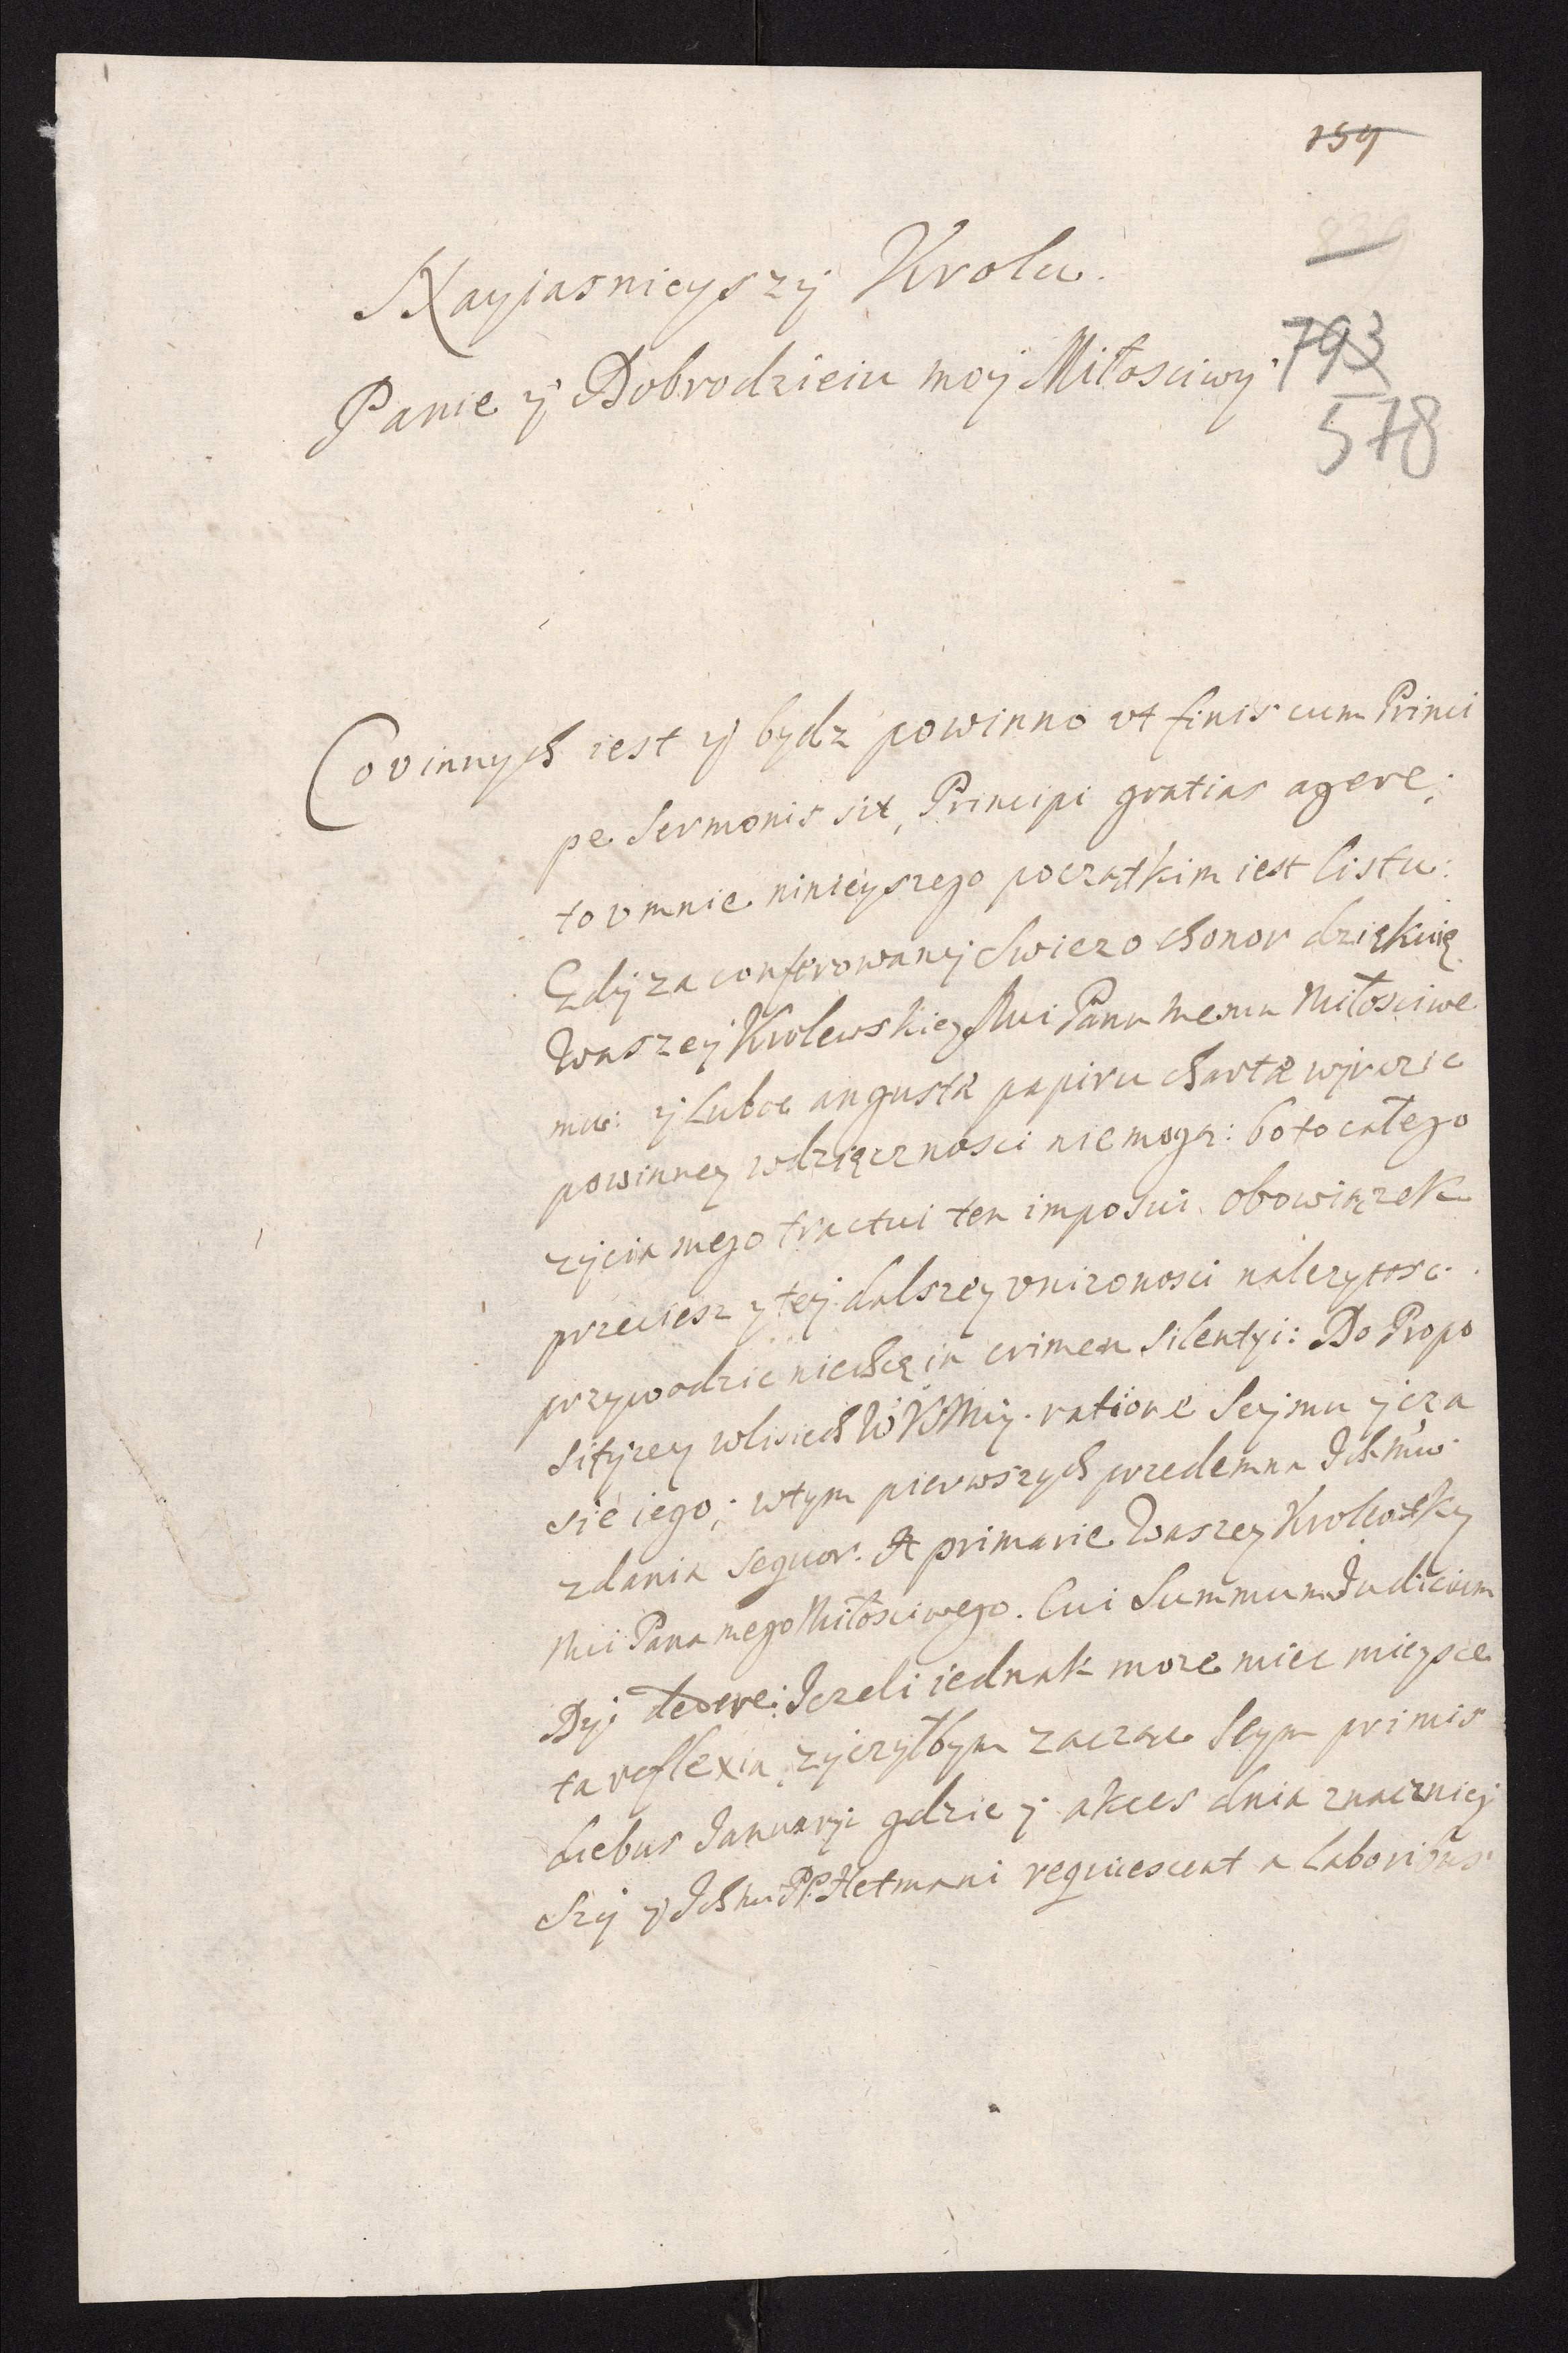 159
839
Nayiasnieyszy Krolu.
Panie y Dobrodzieiu moy Miłosciwy.
793
578
Co v innych iest y bydz powinno vt finis cum Princi
pe Sermonis sit, Principi gratias agere;
to v mnie ninieyszego początkim iest listu:
Gdy za conferowany Swiezo chonor dziękuię
Waszey Krolewskiey Mci Panu Memu Miłosciwe
mu: y Lubo angusta papiru charta wyrazic
powinney wdzięcznosci nie mogą: bo to całego
zycia mego tractui ten imposui obowiązek
przeciesz y tey dalszey vnizonosci nalezytosci
przywodzic niechcę in crimen Silentyi: Do Propo
sityiey w lisiech W K Mci. ratione Seymu y cza
sie iego; w tym pierwszych przedemna Ich Mciow
zdania sequor. A primarie Waszey Krolewsky
Mci Pana mego Miłosciwego. Cui Summum Judicium
Dyi dedere: Jezeli iednak moze miec mieysce
ta reflexia, zyczyłbym zacząc Seym primis
diebus Januaryi gdzie y akces dnia znaczniey
szy y Ich Mc PP. Hetmani requiescent a laboribus